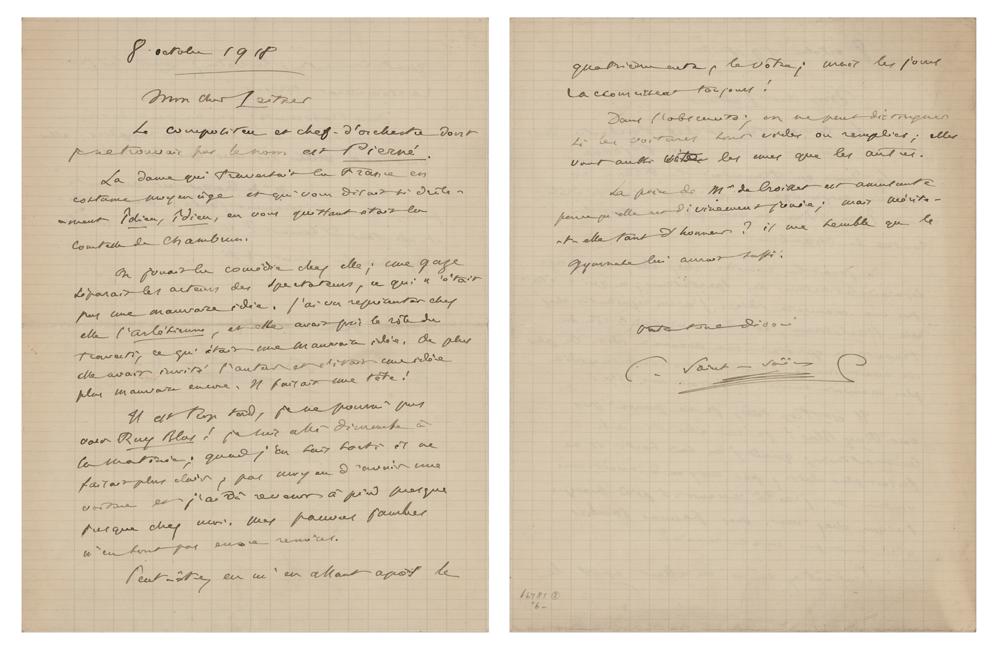 8 octobre 1918
Mon cher Leitner
Le compositeur et chef-d'orchestre dont
je ne trouvais pas le nom est Pierné.
La dame qui traversait la France en
costume moyen-âge et qui vous disait si drôle-
-ment Idieu, Idieu, en vous quittant était la
Comtesse de Chambrun.
On jouait la comédie chez elle; une gaze
séparait les acteurs des spectateurs, ce qui n'était
pas une mauvaise idée. J'ai vu représenter chez
elle l'Arlésienne, et elle avait pris le rôle du
travesti, ce qui était une mauvaise idée. De plus
elle avait invité l'auteur et c'était une idée
plus mauvaise encore. Il faisait une tête!
Il est trop tard, je ne pourrai pas
voir Ruy Blas! je suis allé dimanche à
la matinée; quand j'en suis sorti il ne
faisait plus clair, pas moyen d'avoir une
voiture et j'ai dû revenir à pied presque
jusque chez moi. Mes pauvres jambes
n'en sont pas encore remises.
Peut-être, en m'en allant après le
quatrième acte, le votre; mais les jours
raccourcissent toujours!
Dans l'obscurité, on ne peut distinguer
si les voitures sont vides ou remplies; elles
vont aussi vite les unes que les autres.
La pièce de Mr de Croisset est amusante
parce qu'elle est divinement jouée; mais mérite-
-t-elle tant d'honneur? il me semble que le
Gymnase lui aurait suffi.
Votre tout dévoué
C. Saint-Saëns